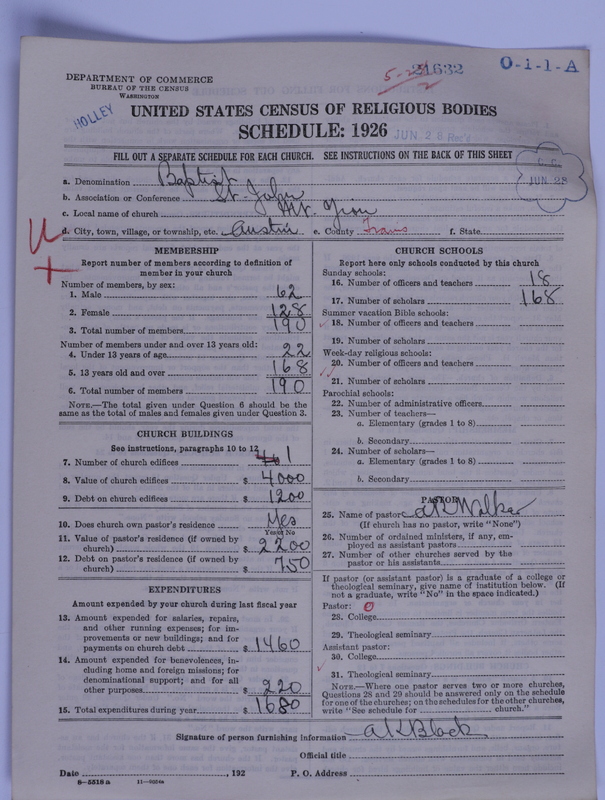 5-22 21632
O-i-1-A
DEPARTMENT OF COMMERCE
BUREAU OF THE CENSUS
WASHINGTON
HOLLEY
UNITED STATES CENSUS OF RELIGIOUS BODIES
SCHEDULE: 1926
JUN 28 Rec'd
FILL OUT A SEPARATE SCHEDULE FOR EACH CHURCH. SEE INSTRUCTIONS ON THE BACK OF THIS SHEET
JUN 28
a. Denomination Baptist
b. Association or Conference St. John
c. Local name of church Mt. Zion
d. City, town, village, or township, etc. Austin e. County Travis f. State
MEMBERSHIP
Report number of members according to definition of
member in your church
Number of members, by sex:
1. Male 62
2. Female 128
3. Total number of members 190
Number of members under and over 13 years old:
4. Under 13 years of age 22
5. 13 years old and over 168
6. Total number of members 190
NOTE.—The total given under Question 6 should be the
same as the total of males and females given under Question 3.
CHURCH BUILDINGS
See instructions, paragraphs 10 to 12
7. Number of church edifices 1
8. Value of church edifices $ 4000
9. Debt on church edifices $ 1200
10. Does church own pastor's residence Yes
Yes or No
11. Value of pastor's residence (if owned by
church) $ 2200
12. Debt on pastor's residence (if owned by
church) $ 750
EXPENDITURES
Amount expended by your church during last fiscal year
13. Amount expended for salaries, repairs,
and other running expenses; for im-
provements or new buildings; and for
payments on church debt $ 1460
14. Amount expended for benevolences, in-
cluding home and foreign missions; for
denominational support; and for all
other purposes $ 220
15. Total expenditures during year $ 1680
CHURCH SCHOOLS
Report here only schools conducted by this church
Sunday schools:
16. Number of officers and teachers 18
17. Number of scholars 168
Summer vacation Bible schools:
18. Number of officers and teachers
19. Number of scholars
Week-day religious schools:
20. Number of officers and teachers
21. Number of scholars
Parochial schools:
22. Number of administrative officers
23. Number of teachers—
a. Elementary (grades 1 to 8)
b. Secondary
24. Number of scholars—
a. Elementary (grades 1 to 8)
b. Secondary
PASTOR
25. Name of pastor Walker
(If church has no pastor, write "None")
26. Number of ordained ministers, if any, em-
ployed as assistant pastors
27. Number of other churches served by the
pastor or his assistants
If pastor (or assistant pastor) is a graduate of a college or
theological seminary, give name of institution below. (If
not a graduate, write "No" in the space indicated.)
Pastor: 0
28. College
29. Theological seminary
Assistant pastor:
30. College
31. Theological seminary
NOTE.—Where one pastor serves two or more churches,
Questions 28 and 29 should be answered only on the schedule
for one of the churches; on the schedules for the other churches,
write "See schedule for church."
Signature of person furnishing information A K Black
Official title
Date , 192 P. O. Address
8—5518 a